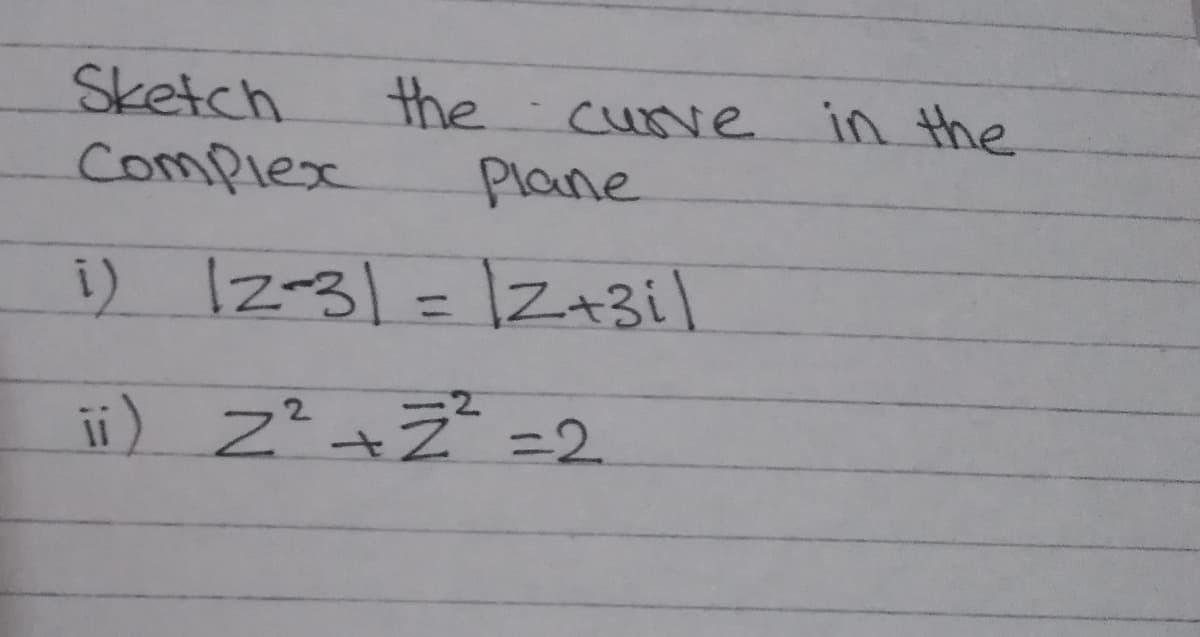 Sketch the curve in the
Complex Plane
i) |z-3| = |z+3i|
ii) z² + z̄² = 2